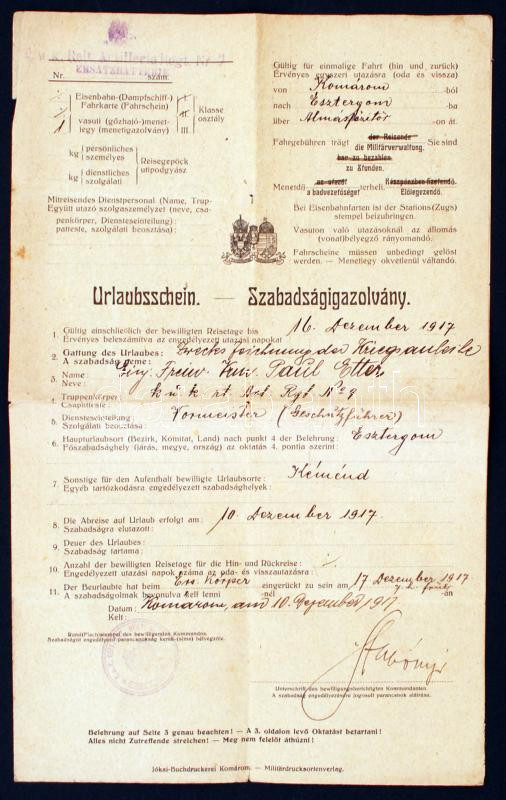 ERSATZBATTERIE
Nr. szám.
Eisenbahn-(Dampfschiff-)
Fahrkarte (Fahrschein)
vasuti (gőzhajó-)menet-
jegy (menetigazolvány)
I.
II.
III.
Klasse
osztály
kg persönliches
személyes
kg dienstliches
szolgálati
Reisegepäck
utipodgyász
Mitreisendes Dienstpersonal (Name, Trup-
Együtt utazó szolgaszemélyzet (neve, csa-
penkörper, Diensteseinteilung):
patteste, szolgálati beosztása):
Gültig für einmalige Fahrt (hin und zurück)
Érvényes egyszeri utazásra (oda és vissza)
von Komarom -ból
nach Esztergom -ba
über Almásfüzitő -on át.
Fahrgebühren trägt der Reisende Sie sind
die Militärverwaltung.
bar zu bezahlen
zu stunden.
Menetdíj az utazót terheli. Készpénzben fizetendő.
a hadvezetőséget Előlegezendő.
Bei Eisenbahnfarten ist der Stations(Zugs)
stempel beizubringen.
Vasuton való utazásoknál az állomás
(vonat)bélyegző rányomandó.
Fahrscheine müssen unbedingt gelöst
werden. — Menetjegy okvetlenül váltandó.
Urlaubsschein. — Szabadságigazolvány.
1. Gültig einschließlich der bewilligten Reisetage bis 16. Dezember 1917
Érvényes beleszámítva az engedélyezett utazási napokat
2. Gattung des Urlaubes: Zwecks Zeichnung der Kriegsanleihe
A szabadság neme:
3. Name: Einj. Freiw. Kan. Paul Etter
Neve:
4. Truppenkörper: k.u.k. rt. Art. Rgt. No 9
Csapatteste:
5. Diensteseinteilung: Vormeister (Geschützführer)
Szolgálati beosztása:
6. Haupturlaubsort (Bezirk, Komitat, Land) nach punkt 4 der Belehrung: Esztergom
Főszabadsághely (járás, megye, ország) az oktatás 4. pontja szerint:
7. Sonstige für den Aufenthalt bewilligte Urlaubsorte: Kéménd
Egyéb tartózkodásra engedélyezett szabadsághelyek:
8. Die Abreise auf Urlaub erfolgt am: 10. Dezember 1917.
Szabadságra elutazott:
9. Dauer des Urlaubes:
Szabadság tartama:
10. Anzahl der bewilligten Reisetage für die Hin- und Rückreise:
Engedélyezett utazási napok száma az oda- és visszautazásra:
11. Der Beurlaubte hat beim Ers. Körper eingerückt zu sein am 17 Dezember 1917
A szabadságolmak bevonulva kell lenni -nél 7 h. früh -án
Datum: Komárom, am 10. Dezember 1917
Kelt:
Rund(Flach)stempel des bewilligenden Kommandos.
Szabadságot engedélyező parancsnokság kerek-(sima) bélyegzője.
Unterschrift des bewilligungsberichtigten Kommandanten.
A szabadság engedélyezésére jogosult parancsnok aláírása.
Belehrung auf Seite 3 genau beachten! — A 3. oldalon levő Oktatást betartani!
Alles nicht Zutreffende streichen! — Meg nem felelőt áthúzni!
Jókai-Buchdruckerei Komárom. — Militärdrucksortenverlag.